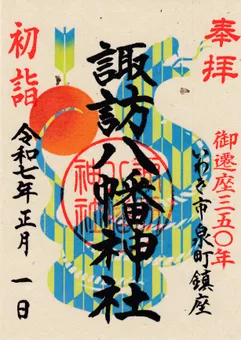 奉拝
御遷座三五〇年
いわき市泉町鎮座
諏訪八幡神社
初詣
令和七年正月一日